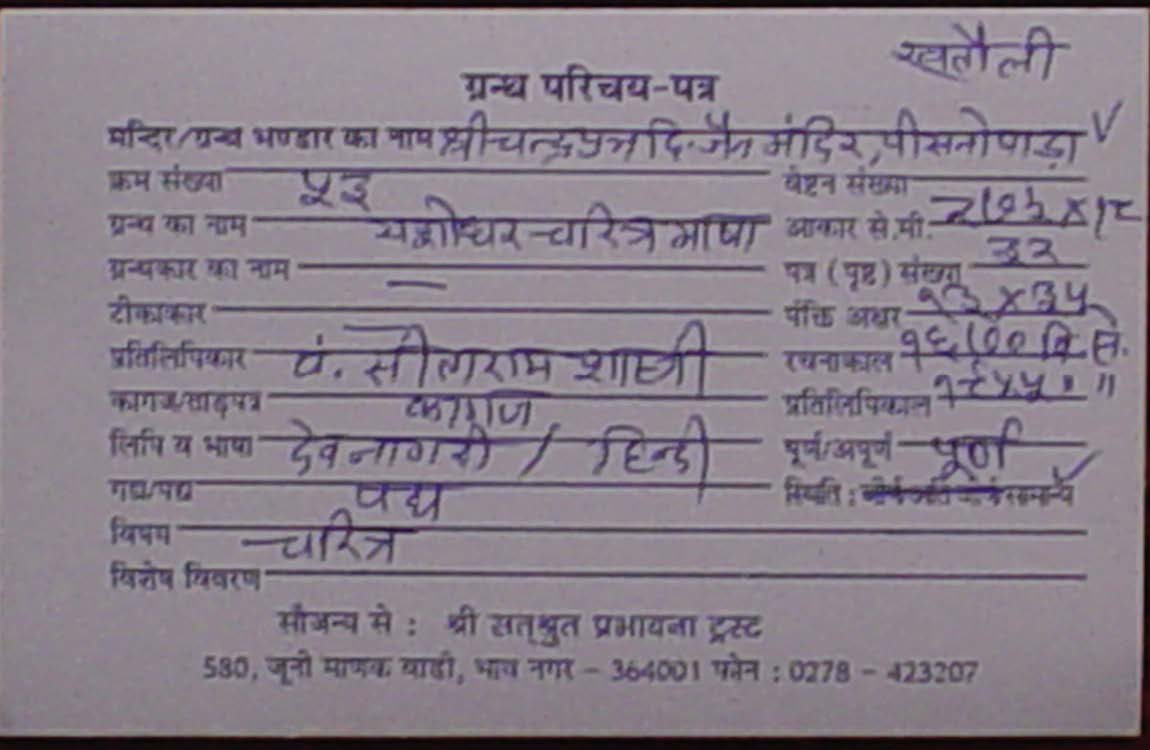 खतौली
ग्रन्थ परिचय-पत्र
मन्दिर/ग्रन्थ भण्डार का नाम श्री चन्द्रप्रभ दि. जैन मंदिर, पीसनोपाड़ा
क्रम संख्या ५३ वेष्टन संख्या
ग्रन्थ का नाम यशोधर चरित्र भाषा आकार से.मी. × १८
ग्रन्थकार का नाम — पत्र (पृष्ठ) संख्या ३२
टीकाकार — पंक्ति अक्षर १३ × ३५
प्रतिलिपिकार पं. सीताराम शास्त्री रचनाकाल
कागज/ताड़पत्र कागज प्रतिलिपिकाल
लिपि व भाषा देवनागरी / हिन्दी पूर्ण/अपूर्ण पूर्ण
गद्य/पद्य पद्य स्थिति :
विषय चरित्र
विशेष विवरण
सौजन्य से : श्री सत्श्रुत प्रभावना ट्रस्ट
580, जूनी माणक वाडी, भाव नगर - 364001 फोन : 0278 - 423207